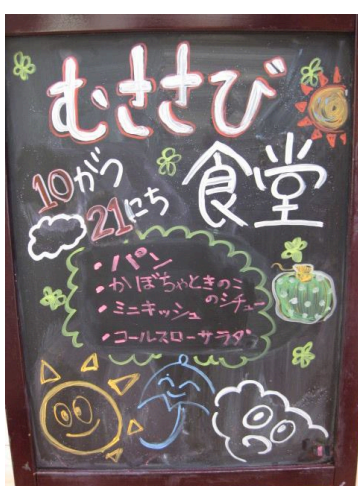 むささび
食堂
10がつ
21にち
・パン
・かぼちゃときのこ
のシチュー
・ミニキッシュ
・コールスローサラダ